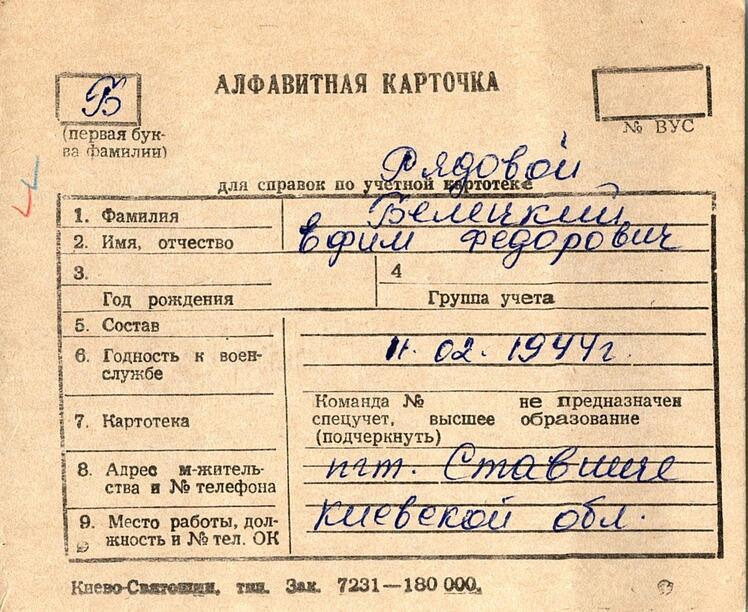 АЛФАВИТНАЯ КАРТОЧКА
Б
(первая бук-
ва фамилии)
№ ВУС
Рядовой
для справок по учетной картотеке
1. Фамилия Белецкий
2. Имя, отчество Ефим Федорович
3.
Год рождения
4
Группа учета
5. Состав
6. Годность к воен-
службе
11.02.1944г.
7. Картотека
Команда № не предназначен
спецучет, высшее образование
(подчеркнуть)
8. Адрес м-житель-
ства и № телефона
пгт. Ставище
9. Место работы, дол-
жность и № тел. ОК
Киевской обл.
Киево-Святошин. тип. Зак. 7231—180 000.